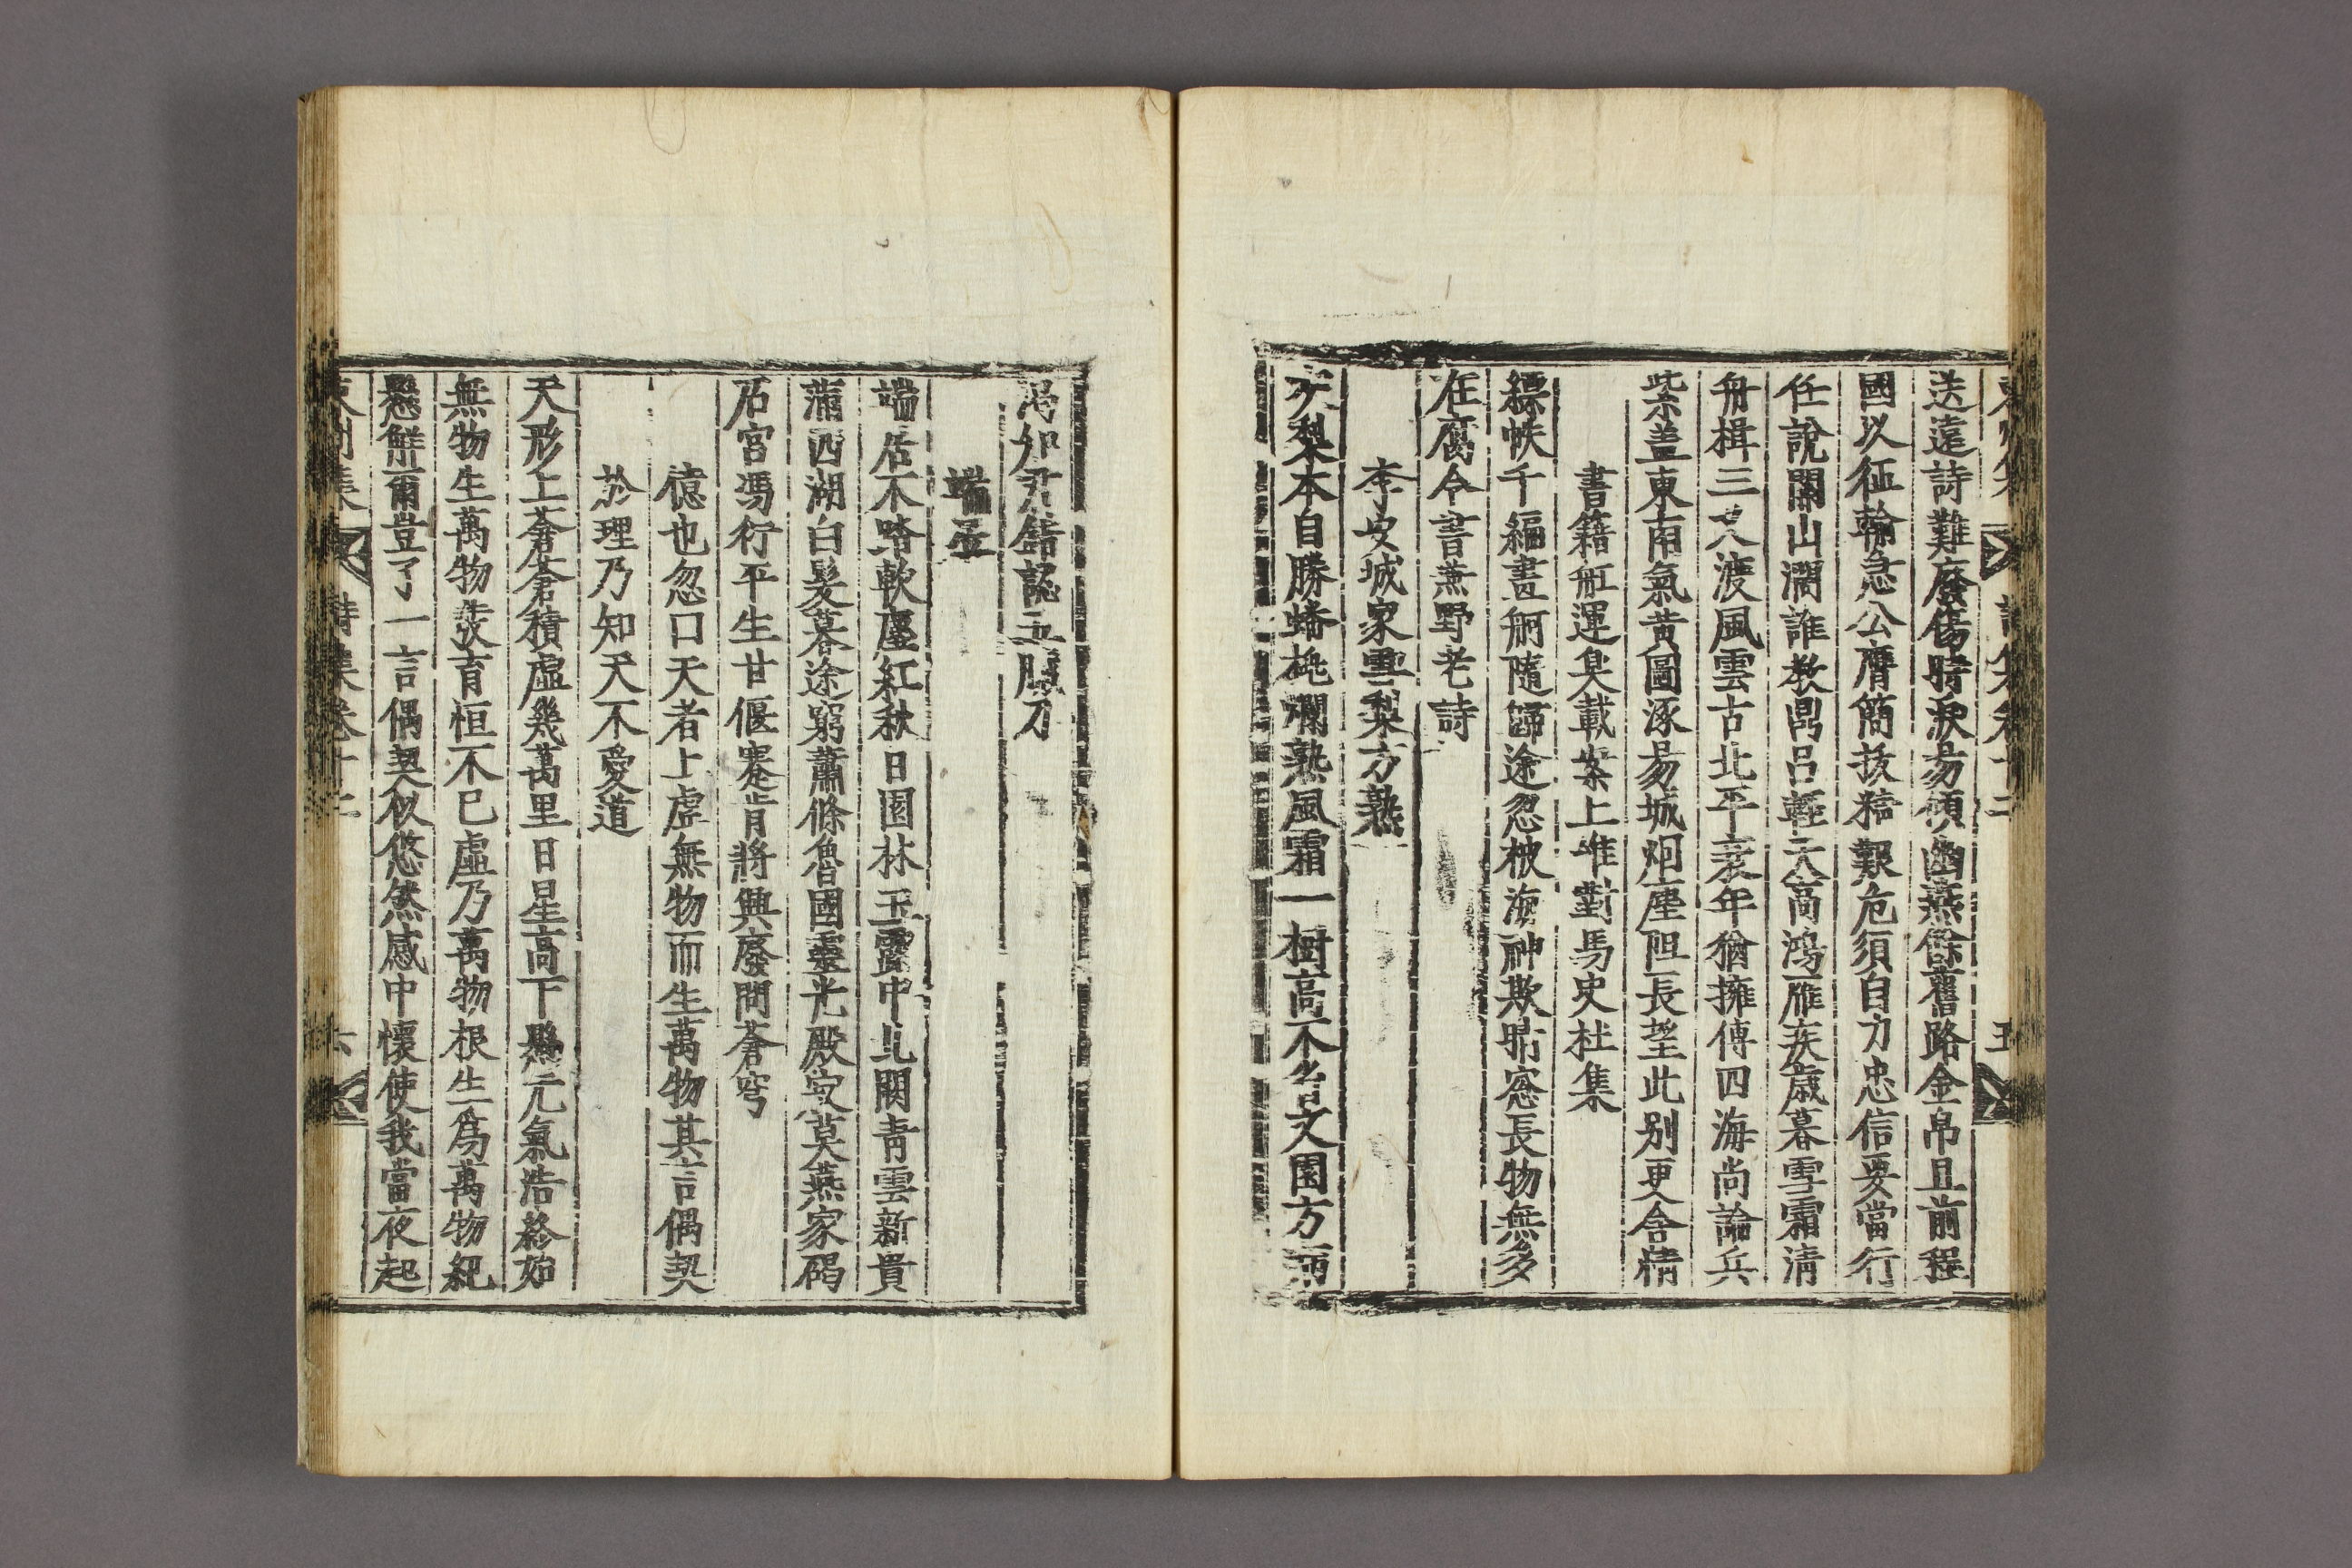 送遠詩難廢傷時淚易傾幽燕餘舊路金帛且前程
國以征輸急公膺簡拔精艱危須自力忠信要當行
任說關山濶誰教鼎呂輕天高鴻雁疾歲暮雪霜淸
舟楫三江渡風雲古北平衰年猶擁傳四海尚論兵
紫盖東南氣黃圖涿易城烟塵但長望此别更含情
書籍舡運臭載案上唯對馬史杜集
縹帙千編畫舸隨歸途忽被海神欺歸窓長物無多
在腐令書兼野老詩
李安城家雪梨方熟
大梨本自勝蟠桃爛熟風霜一樹高不爲文園方病
渴如君錯認並
端居
端居不踏軟塵紅秋日園林玉露中北闕靑雲新貴
滿西湖白髮暮途窮蕭條魯國靈光殿寂莫燕家碣
石宮馮衍平生甘偃蹇肯將興廢問蒼穹
億也忽口天者上虛無物而生萬物其言偶契
於理乃知天不愛道
天形上蒼蒼積虛幾萬里日星高下懸元氣浩終始
無物生萬物發育恒不已虛乃萬物根生爲萬物紀
懸解爾豈了一言偶契似悠然感中懷使我當夜起
東州集 詩集卷十二 六